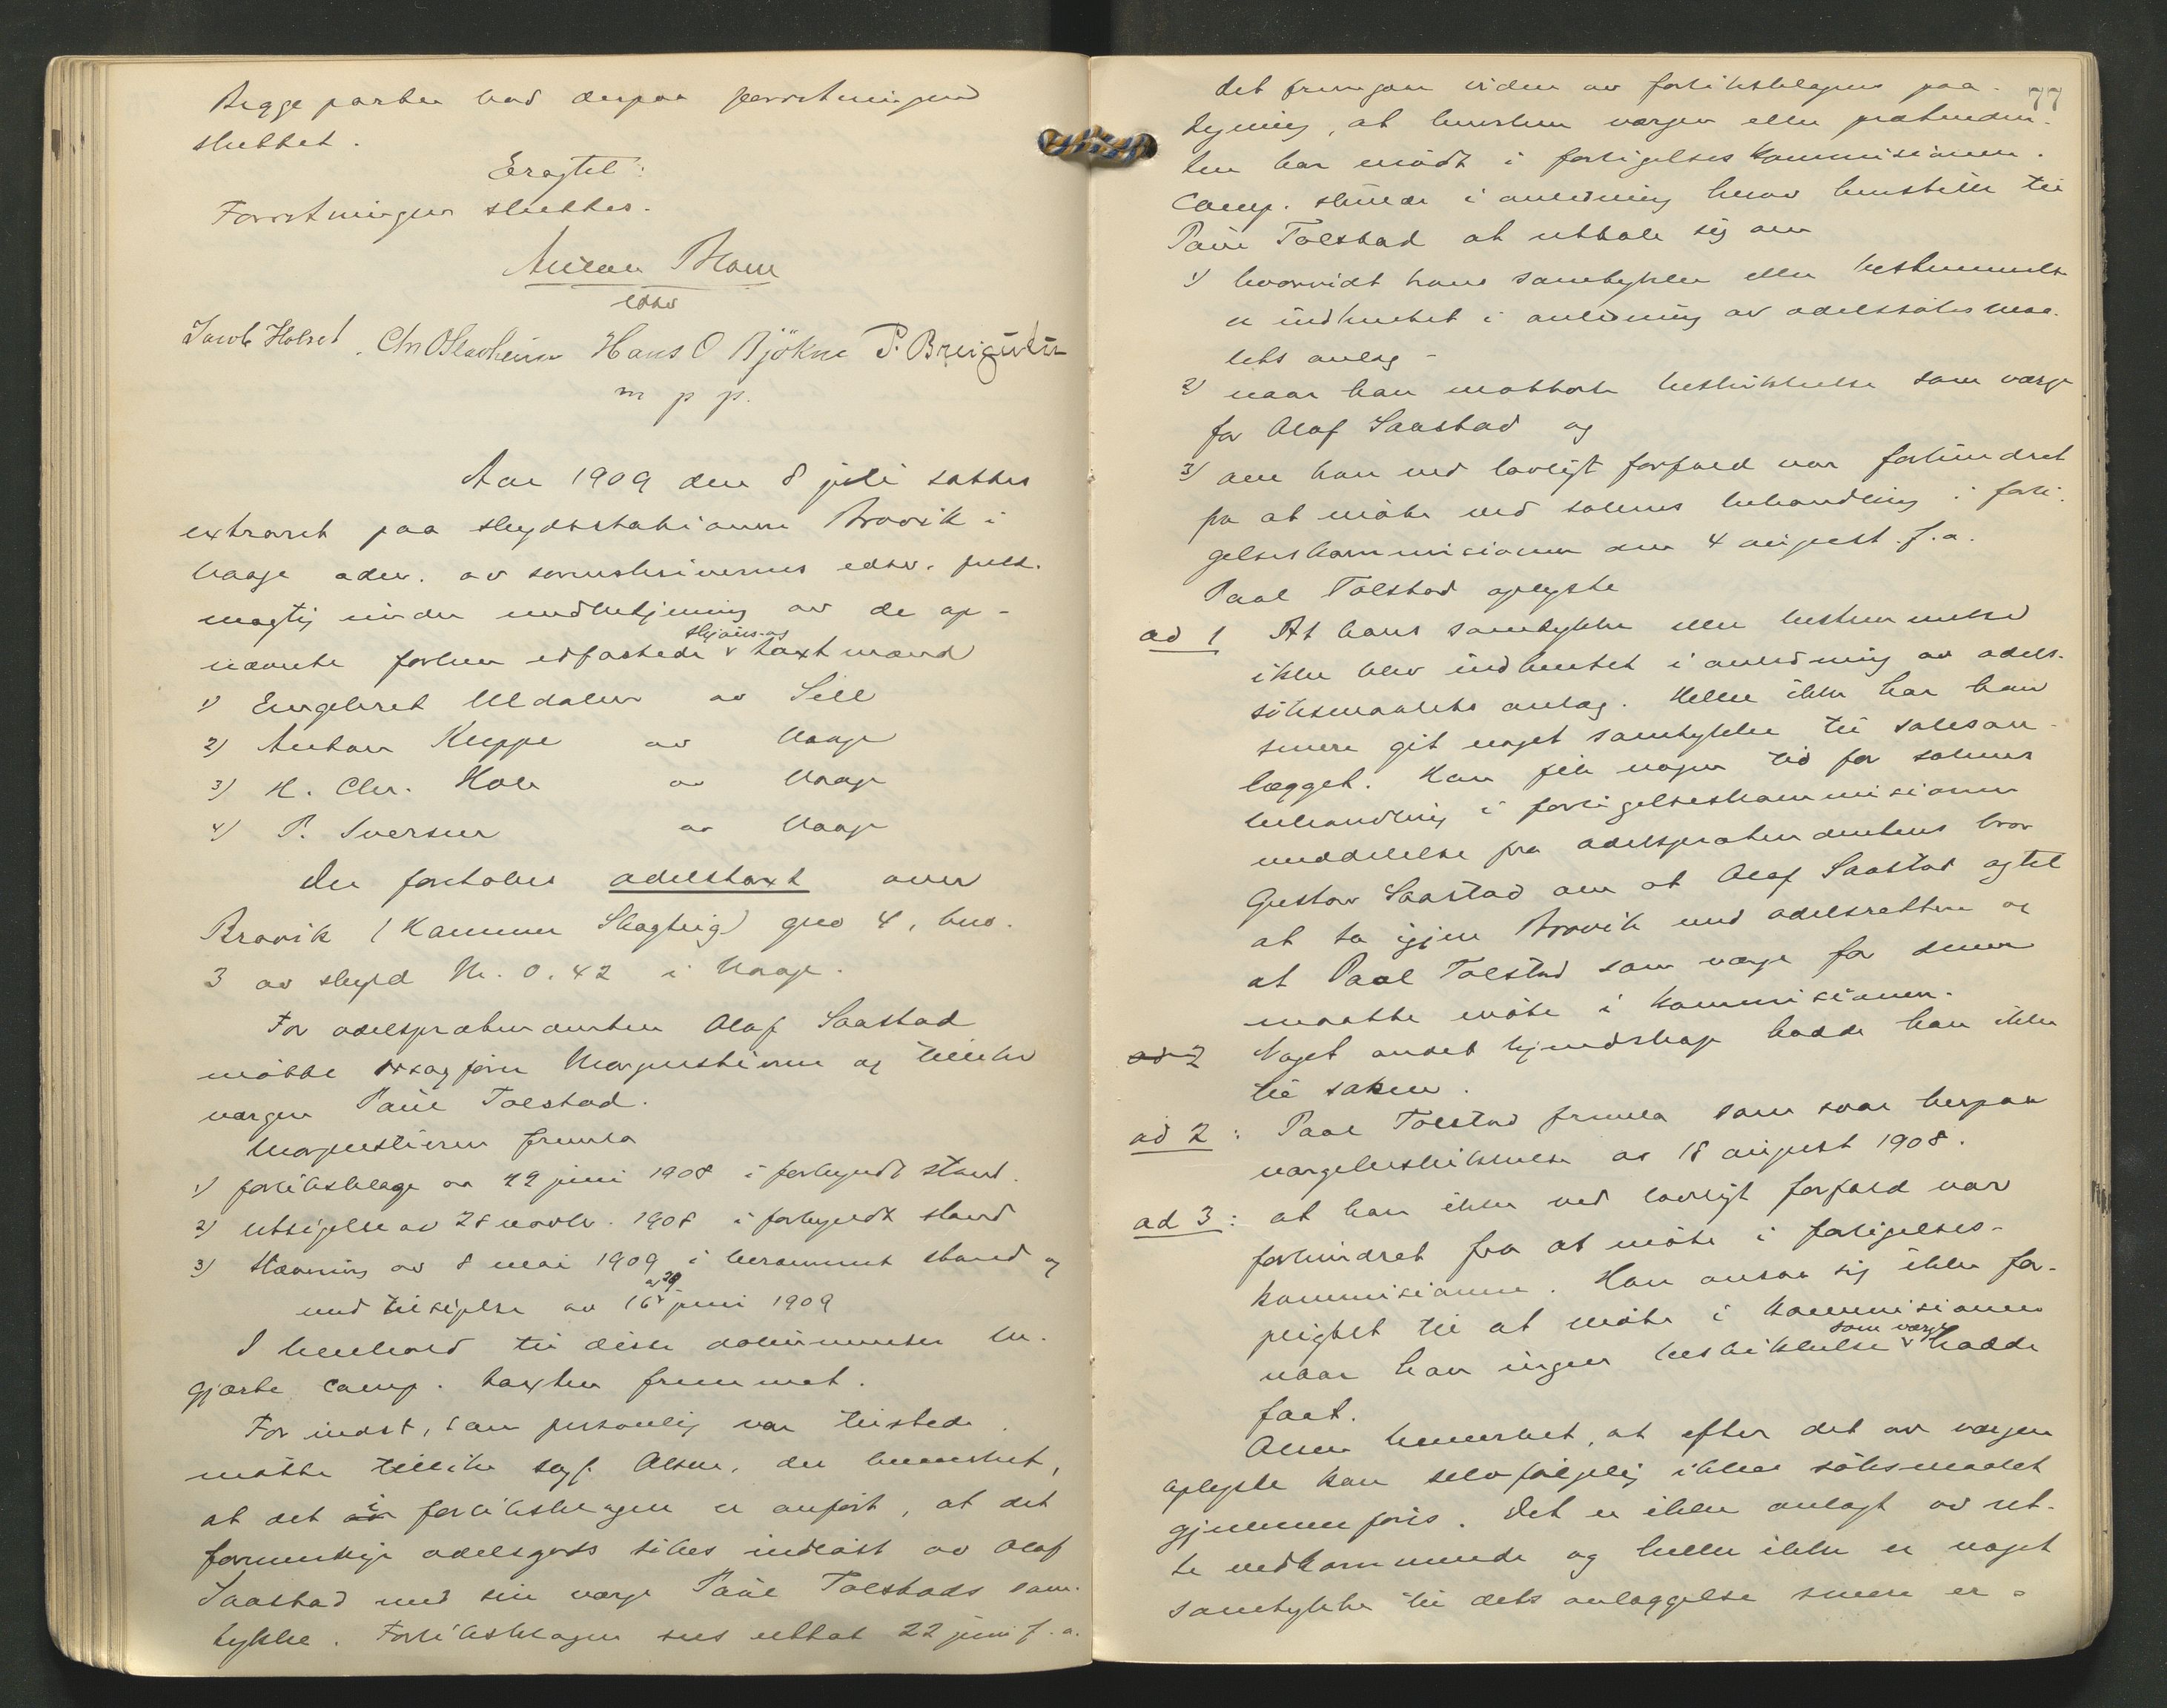 Begge parter bad derpaa forretningen
sluttet.
Eragtet:
Forretningen sluttes.
Anton Blom
edsv
Jacob Holset. Chr Slaaheim Hans O Bjökne P.
m p p.
Aar 1909 den 8 juli sattes
extraret paa skydsstationen Brovik i
Vaage adev. av sorenskriverens edsv. fuld-
mægtig under medbetjening av de op-
nævnte forhen edfæstede skjöns- og taxtmænd
1) Engebret Uldalen av Sell
2) Anton Kleppe av Vaage
3) H. Chr. Hole av Vaage
4) P. Iversen av Vaage
Der foretoges odelstaxt over
Brovik (Kammen Slagtrig) gno 4, bno.
3 av skyld Mr. 0.42 i Vaage.
For odelsprætendenten Olaf Saastad
mötte sagförer Morgenstierne og tillike
værgen Paul Tolstad.
Morgenstierne fremla
1) forliksklage av 22 juni 1908 i forkyndt stand.
2) utsigelse av 28 novbr. 1908 i forkyndt stand
3) Stævning av 8 mai 1909 i berammet stand og
med tilsigelse av 16 og 29 juni 1909
I henhold til disse dokumenter be-
gjærte comp. taxten fremmet.
For indst, som personlig var tilstede
mötte tillike sagf. Olsen, der bemerket,
at det av i forliksklagen er anfört, at det
formentlige odelsgods sökes indlöst av Olaf
Saastad med sin værge Paul Tolstads sam-
tykke. Forliksklagen sees uttat 22 juni f. a.
77
Det fremgaar viden av forliksklagens paa-
tegning, at hverken værgen eller prætenden-
ten har mödt i forligelseskommisionen.
Comp. skulde i anledning herav henstille til
Paul Tolstad at uttale sig om
1) hvorvidt hans samtykke eller bestemmelse
er indhentet i anledning av odelssöksmaa-
lets anlæg -
2) naar han mottok beskikkelse som værge
for Olaf Saastad og
3) om han ved lovligt forfald var forhindret
fra at möte ved sakens behandling i forli-
gelseskommisionen den 4 august f. a.
Paal Tolstad oplyste
ad 1 At hans samtykke eller bestemmelse
ikke blev indhentet i anledning av odels-
söksmaalets anlæg. Heller ikke har han
senere git noget samtykke til saksan-
lægget. Han fik nogen tid for sakens
behandling i forligelseskommisionen
meddelelse fra odelsprætendentens bror
Gustav Saastad om at Olaf Saastad agtet
at ta igjen Brovik med odelsretten og
at Paal Tolstad som værge for denne
maatte möte i kommisionen.
ad 2 Noget andet kjendskap hadde han ikke
til saken.
ad 2: Paal Tolstad fremla som svar herpaa
værgebeskikkelse av 18 august 1908.
ad 3: at han ikke ved lovligt forfald var
forhindret fra at möte i forligelses-
kommisionen. Han ansaa sig ikke for-
pligtet til at möte i kommisionen
naar han ingen beskikkelse som værge hadde
faat.
Olsen bemerket, at efter det av værgen
oplyste kan selvfölgelig ikke söksmaalet
gjennemföres. Det er ikke anlagt av ret-
te vedkommende og heller ikke er noget
samtykke til dets anlæggelse senere er-